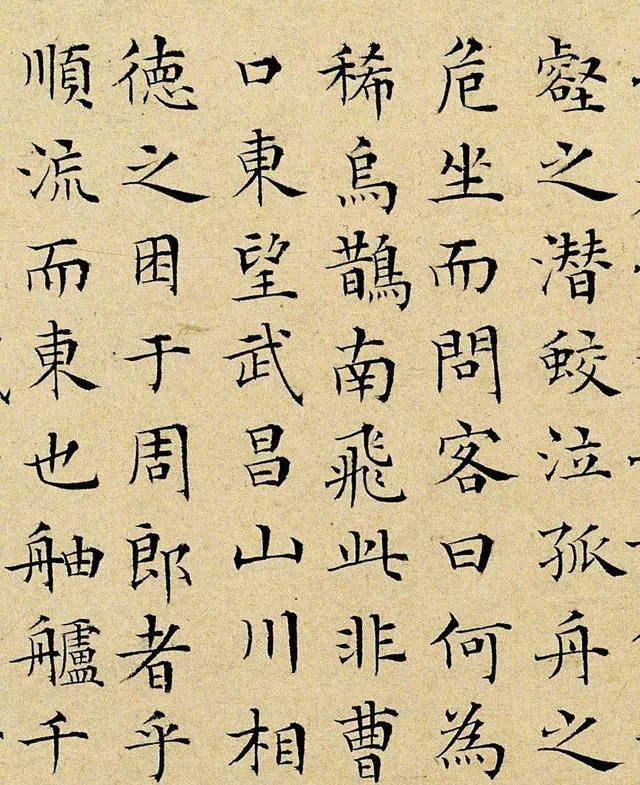 壑之潜蛟泣孤舟之
危坐而問客曰何為
稀烏鵲南飛此非曹
口東望武昌山川相
徳之困于周郎者乎
順流而東也舳艫千